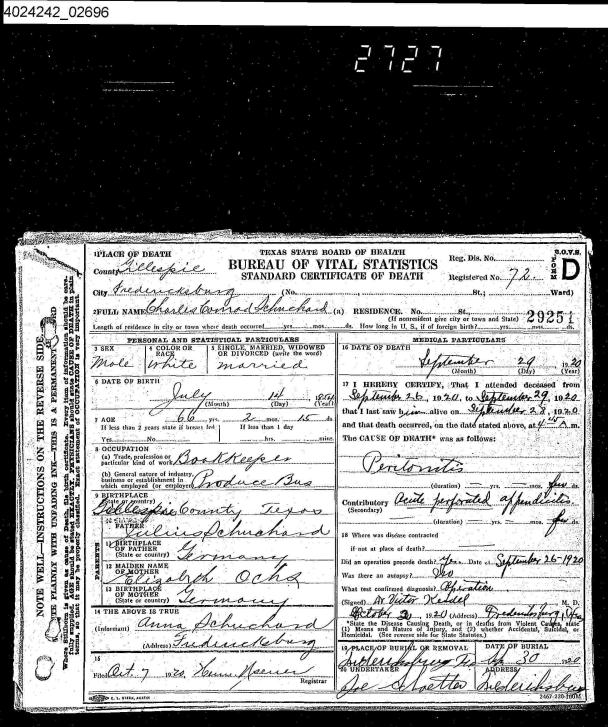 4024242_02696
2727
1 PLACE OF DEATH
TEXAS STATE BOARD OF HEALTH
BUREAU OF VITAL STATISTICS
STANDARD CERTIFICATE OF DEATH
Reg. Dis. No.
B.O.V.S.
FORM D
County Gillespie
Registered No. 72.
City Fredericksburg (No. St.; Ward)
2 FULL NAME Charles Conrad Schuchard (a) RESIDENCE. No. St.,
(If nonresident give city or town and State)
29251
Length of residence in city or town where death occurred yrs. mos. ds. How long in U. S., if of foreign birth? yrs. mos. ds.
PERSONAL AND STATISTICAL PARTICULARS
3 SEX
Male
4 COLOR OR RACE
White
5 SINGLE, MARRIED, WIDOWED OR DIVORCED (write the word)
married
6 DATE OF BIRTH
July 14 1854
(Month) (Day) (Year)
7 AGE 66 yrs. 2 mos. 15 ds.
If less than 2 years state if breast fed
If less than 1 day
Yes No hrs. mins.
8 OCCUPATION
(a) Trade, profession or particular kind of work Bookkeeper
(b) General nature of industry, business or establishment in which employed (or employer) Produce Bus
9 BIRTHPLACE
(State or country)
Gillespie County Texas
PARENTS
FATHER
Julius Schuchard
11 BIRTHPLACE OF FATHER
(State or country) Germany
12 MAIDEN NAME OF MOTHER
Elizabeth Ochs
13 BIRTHPLACE OF MOTHER
(State or country) Germany
14 THE ABOVE IS TRUE
(Informant) Anna Schuchard
(Address) Fredericksburg
15
Filed Oct. 7 1920
Registrar
MEDICAL PARTICULARS
16 DATE OF DEATH
September 29 1920
(Month) (Day) (Year)
17 I HEREBY CERTIFY, That I attended deceased from
September 26, 1920, to September 29, 1920
that I last saw him alive on September 28, 1920
and that death occurred, on the date stated above, at 4 A m.
The CAUSE OF DEATH* was as follows:
Peritonitis
(duration) yrs. mos. few ds.
Contributory Acute perforated appendicitis
(Secondary)
(duration) yrs. mos. few ds.
18 Where was disease contracted
if not at place of death?
Did an operation precede death? yes Date of September 26-1920
Was there an autopsy? No
What test confirmed diagnosis? Operation
(Signed) Dr Victor Keidel M. D.
October 2, 1920 (Address) Fredericksburg,
*State the Disease Causing Death, or in deaths from Violent Causes, state
(1) Means and Nature of Injury, and (2) whether Accidental, Suicidal, or
Homicidal. (See reverse side for State Statutes.)
19 PLACE OF BURIAL OR REMOVAL
Fredericksburg
DATE OF BURIAL
30 1920
20 UNDERTAKER
Joe Schaetter
ADDRESS
Fredericksburg
E. L. STECK, AUSTIN
2467-220-100M
NOTE WELL—INSTRUCTIONS ON THE REVERSE SIDE.
WRITE PLAINLY WITH UNFADING INK—THIS IS A PERMANENT RECORD